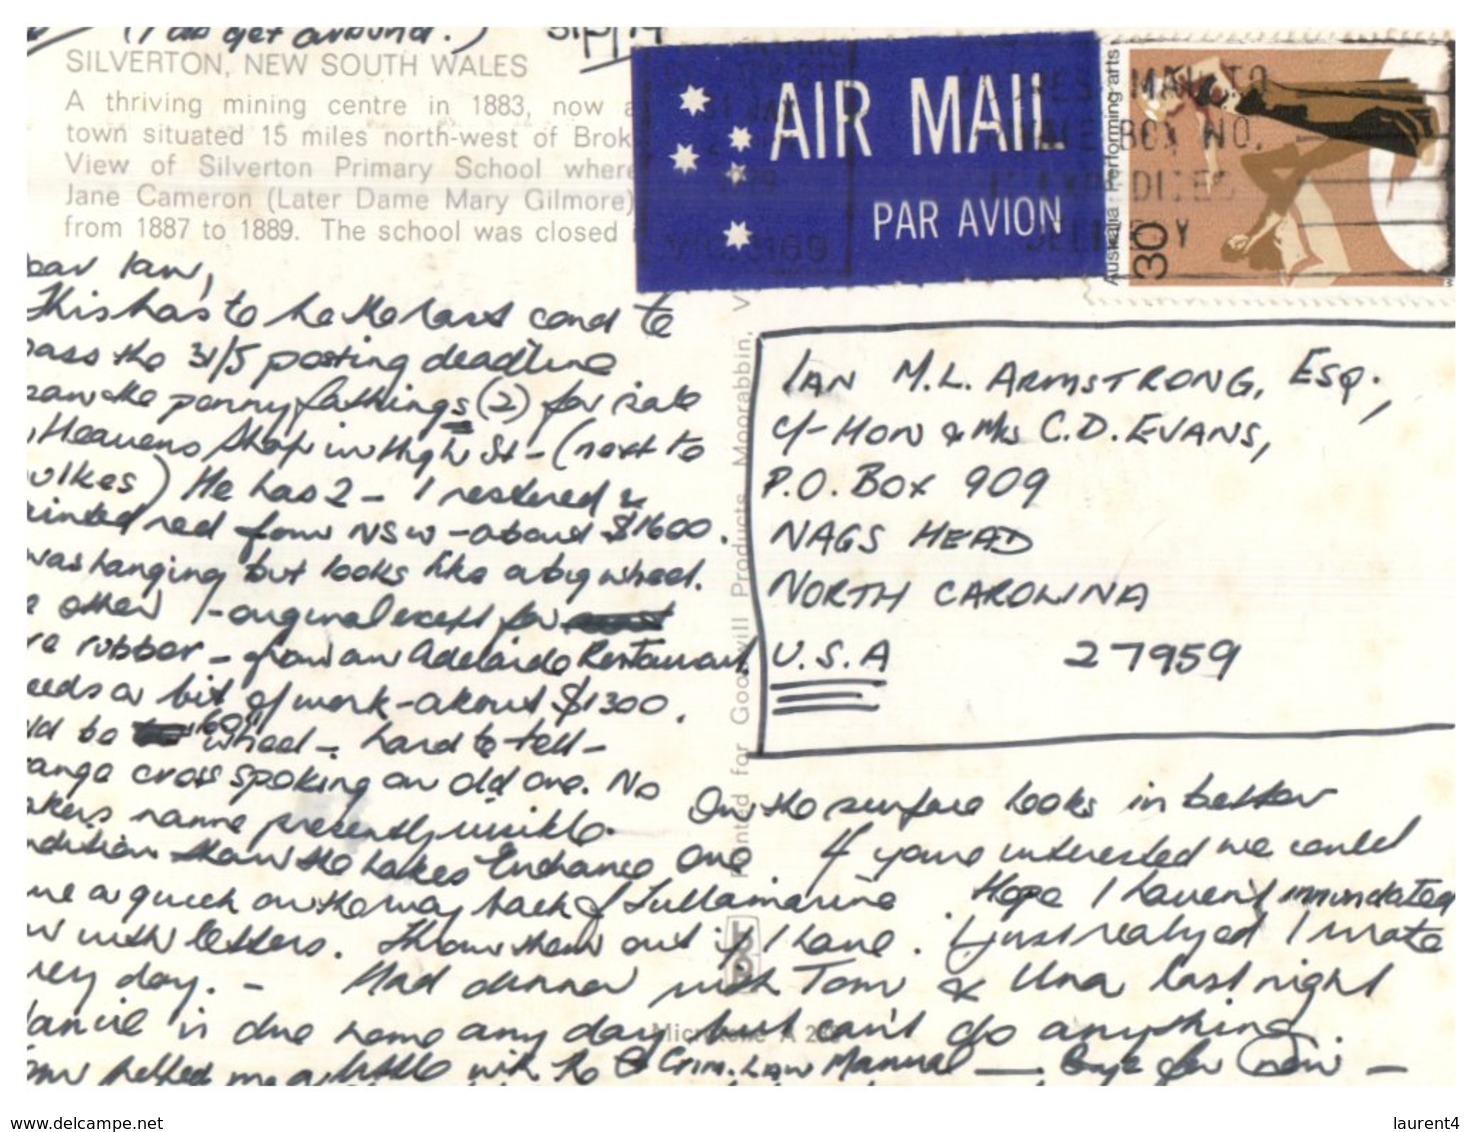 (I do get around.) 31/5/79
SILVERTON, NEW SOUTH WALES
A thriving mining centre in 1883, now a
town situated 15 miles north-west of Brok
View of Silverton Primary School where
Jane Cameron (Later Dame Mary Gilmore)
from 1887 to 1889. The school was closed
AIR MAIL
PAR AVION
Australia · Performing arts
30
MAIL TO
BOX NO.
ear Ian,
This has to be the last card to
pass the 31/5 posting deadline
saw the penny fathings (2) for sale
Heavens Shop in High St - (next to
wilkes) He has 2 - 1 restored &
ainted red from NSW - about $1600.
was hanging but looks like a big wheel.
e other 1 - original except for
re rubber - from an Adelaide Restaurant
eeds a bit of work - about $1300.
ld be "60" wheel - hard to tell -
ange cross spoking on old one. No
akers name presently visible.
On the surface looks in better
ndition than the Lakes Entrance One. If you're interested we could
me a quick on the way back of Tullamarine. Hope I haven't innundated
with letters. Throw them out if I have. I just realyzed I wrote
very day. - Had dinner with Tom & Una last night
is due home any day but can't do anything.
Tom helped me a little with the Crim. Law Manual — Bye for now -
IAN M.L. ARMSTRONG, ESQ.,
C/- HON & Mrs C.D. EVANS,
P.O. BOX 909
NAGS HEAD
NORTH CAROLINA
U.S.A 27959
Printed for Goodwill Products, Moorabbin, V
www.delcampe.net
laurent4